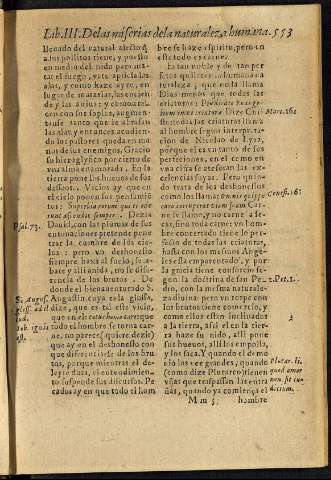 Lib. III. De las miserias de la naturaleza humana. 553
lleuado del natural afecto q̃
a sus pollitos tiene, y puesto
en medio del nido para ma-
tar el fuego, bate apriesa las
alas, y como haze ayre, en-
ciende
y las auiua: y como
cen con sus soplos, aumen-
tanse tanto que le abrasan
las alas, y entonces acudien-
do los pastores queda en ma-
nos de sus enemigos. Gracio
so hieroglyfico por cierto de
vna alma enamorada. En la
tierra pone los hueuos de sus
desseos. Vicios ay que en
el cielo ponen sus pensamiẽ-
tos: Superbia eorum qui te ode-
runt ascendit semper. Dezia
Dauid, con las plumas de su
entonacion se pretende pene
trar la cumbre de los cie-
los: pero vn deshonesto
siempre baxa al suelo, se a-
bate y allí anida, no se dife-
rencia de los brutos. De
donde el bienauenturado S.
Augustin, cuya es la glossa,
dize, que es tal este vicio,
que
todo el hombre se torna car-
ne, no parece (quiere dezir)
que ay en el deshonesto con
que diferenciarse de los bru
tos, porque mientras el de-
leyte dura, el entendimien-
to suspende sus discursos. Pe
cados ay en que todo el hom
Psal. 73.
S. Augus.
bre se haze espiritu, pero en
este todo es carne.
Es tan noble y de tan per
fetos quilates la humana na
turaleza, que no la llama
Dios menos que todas las
criaturas: Prædicate Euange-
lium omni creaturæ. Dize Chri
sto, todas las criaturas llama
al hombre segun interpreta-
cion de Nicolao de Lyra,
porque es vn tanto de sus
perfecciones, en el como en
vna cifra estan todas las ex-
celencias suyas. Pero quan-
do trata de los deshonestos
como los llama? Omnis quippe
caro
ne se llamen, y no carne a se-
cas, sino toda carne: vn hom-
bre concertado tiene lo per-
fecto de todas las criaturas,
hasta con los mesmos Ange-
les es
la gracia tiene consorcio se-
gun la doctrina de san Pe-
dro, con la mesma naturale-
za diuina: pero vn torpe con
los brutos tiene comercio, y
como ellos estan inclinados
a la tierra, assi el en la tier-
ra haze su nido, allí pone
sus hueuos, allí los empolla,
y los saca. Y quando el demo
nio los vee grandes, quando
(como dize Plutarco) tienen
vñas que traspassan las entra
ñas, quando ya comiença el
Marc. 16.
Genes. 6.
2. Pet. 1.
Plutar. li.
quod amor
non sit iu-
dicium.
M m 5 hombre